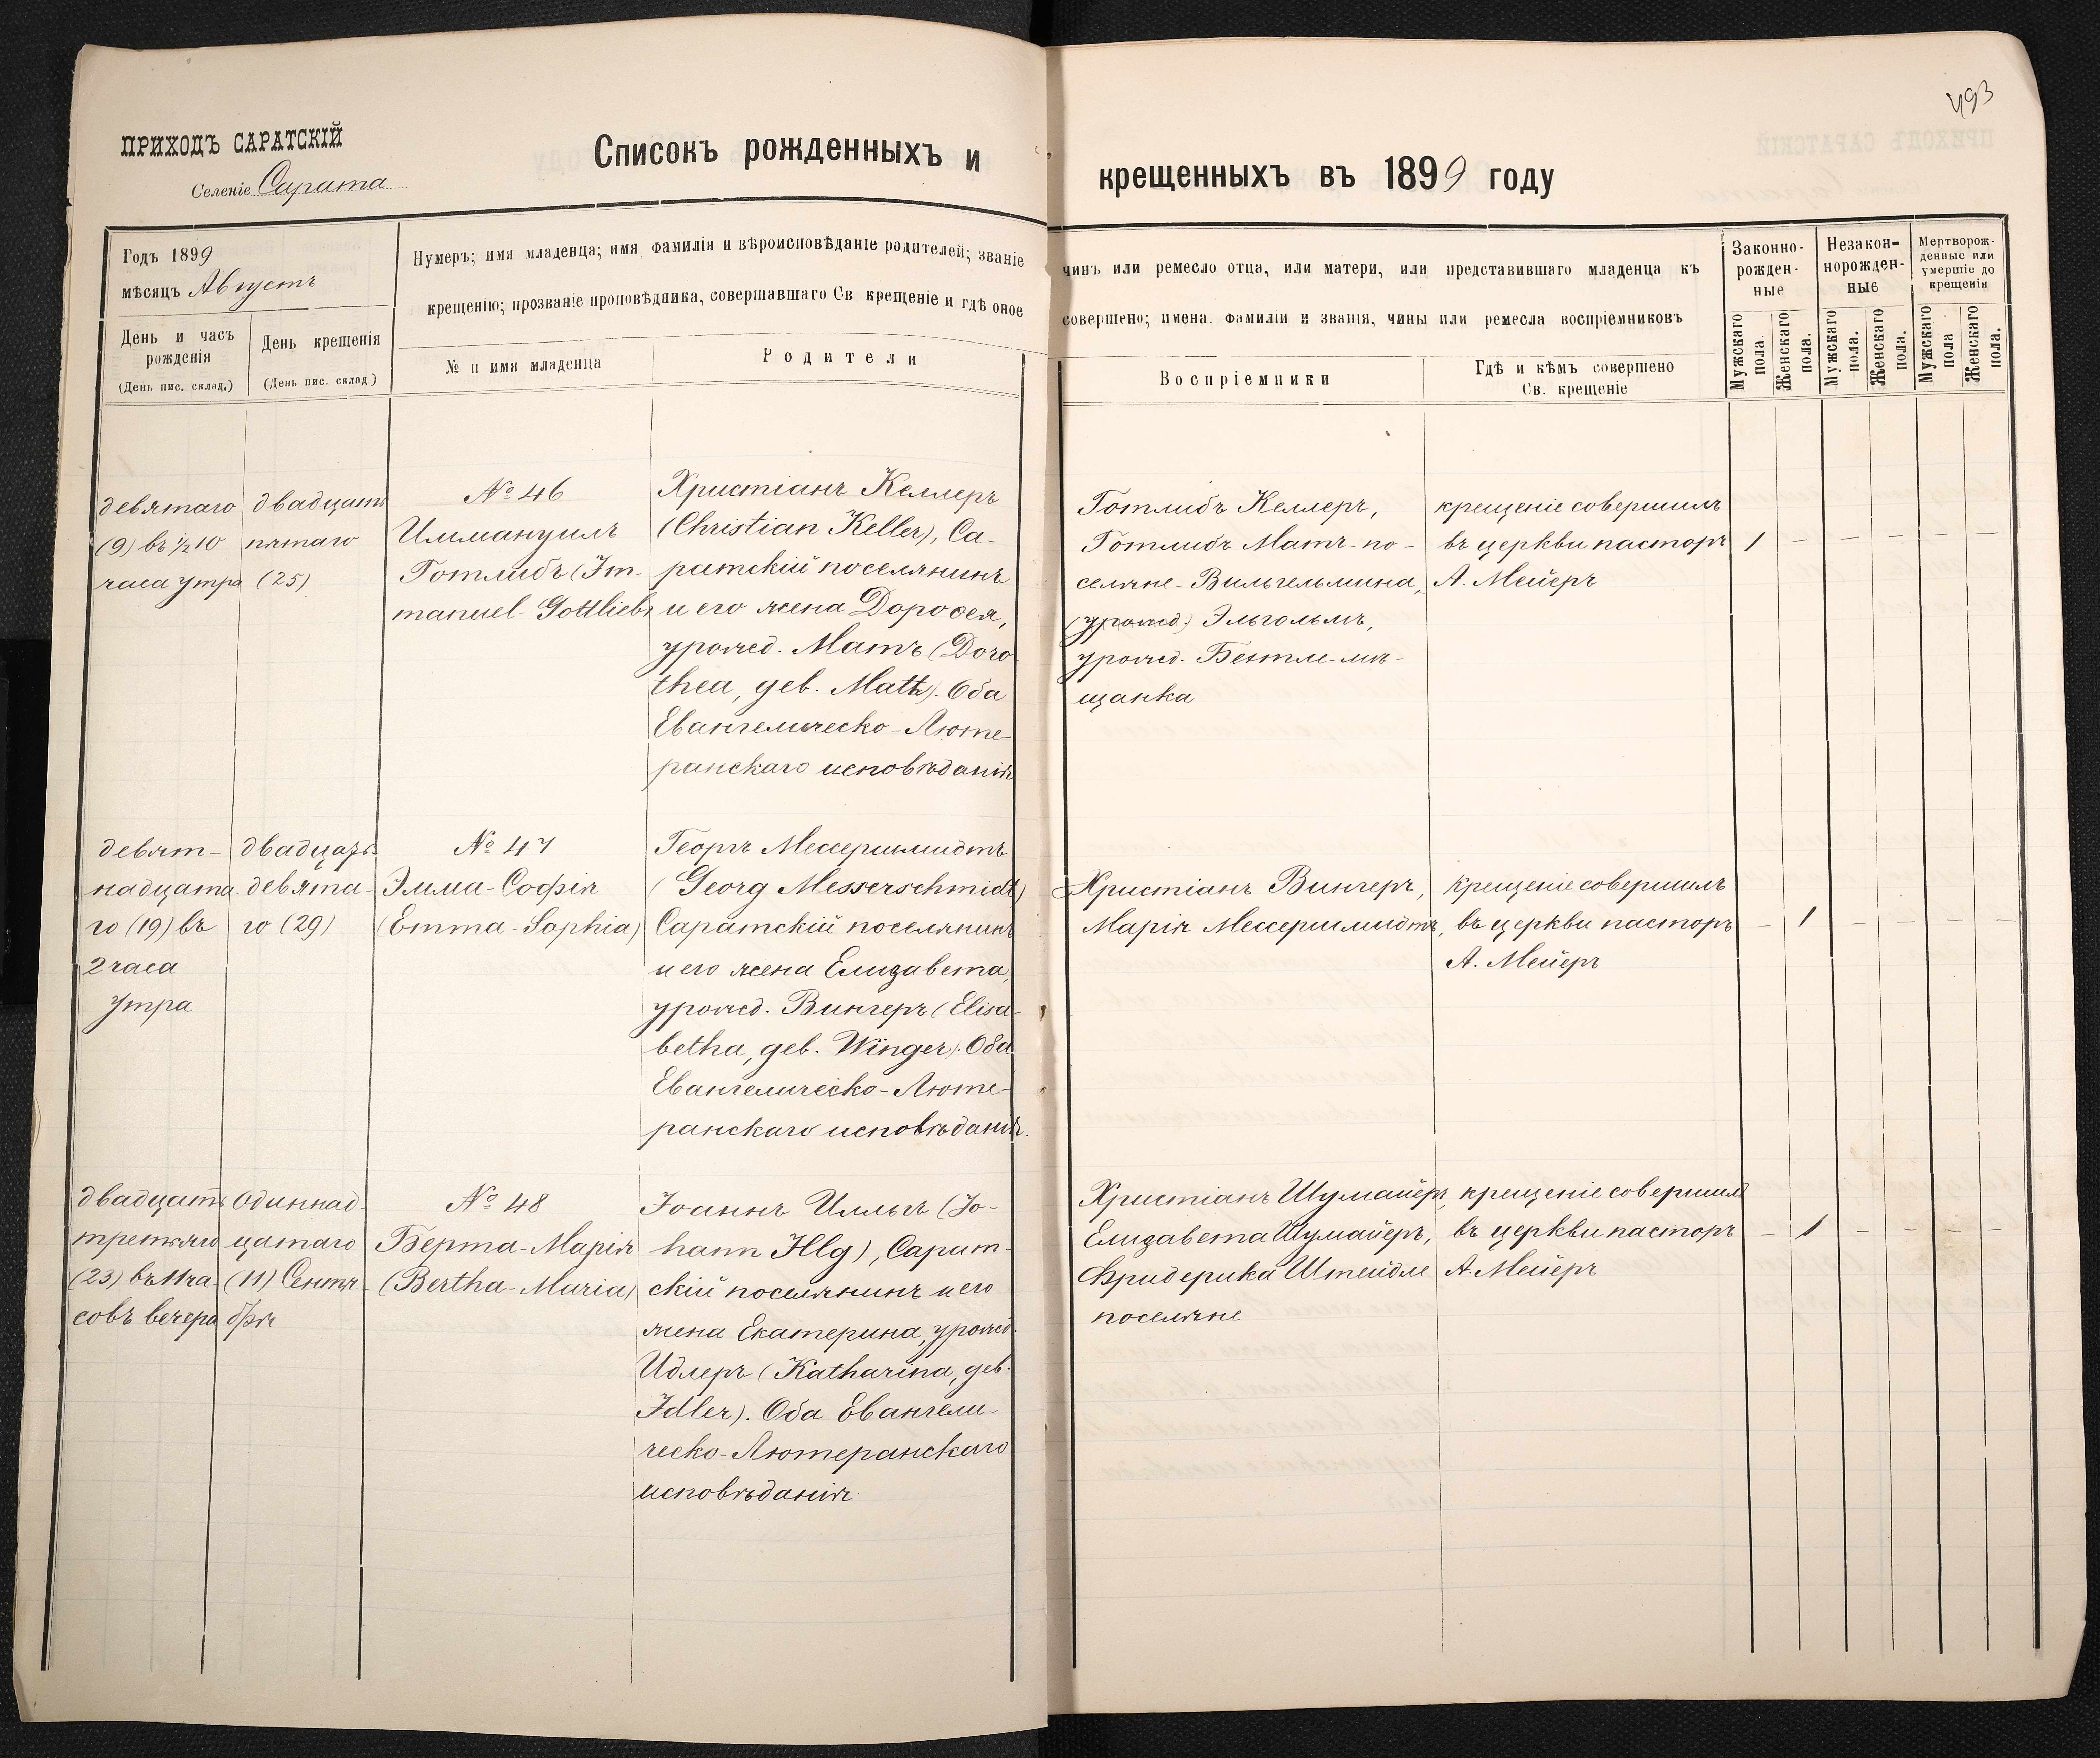 493
ПРИХОДЪ САРАТСКІЙ
Селеніе Сарата
Списокъ рожденныхъ и
крещенныхъ въ 1899 году
Годъ 1899
мѣсяцъ Августъ
День и часъ рожденія
(День пис. склад.)
День крещенія
(День пис. склад)
Нумеръ; имя младенца; имя фамилія и вѣроисповѣданіе родителей; званіе
крещенію; прозваніе проповѣдника, совершавшаго Св крещеніе и гдѣ оное
№ и имя младенца
Родители
чинъ или ремесло отца, или матери, или представившаго младенца къ
совершено; имена фамиліи и званія, чины или ремесла воспріемниковъ
Воспріемники
Гдѣ и кѣмъ совершено
Св. крещеніе
Законно-
рожден-
ные
Незакон-
норожден-
ные
Мертворож-
денные или
умершіе до
крещенія
Мужскаго пола
Женскаго пола.
Мужскаго пола.
Женскаго пола.
Мужскаго пола
Женскаго пола.
девятаго
(9) въ ½ 10
часа утра
двадцать
пятаго
(25)
№ 46
Иммануилъ
Готлибъ (Im-
manuel-Gottlieb)
Христіанъ Келлеръ
(Christian Keller), Са-
ратскій поселянинъ
и его жена Доροѳея,
урожд. Матъ (Doro-
thea, geb. Math). Оба
Евангелическо-Люте-
ранскаго исповѣданія
Готлибъ Келлеръ,
Готлибъ Матъ-по-
селяне-Вильгельмина,
(урожд.) Эльгольмъ,
урожд. Бентле-мѣ-
щанка
крещеніе совершилъ
въ церкви пасторъ
А. Мейеръ
1 – – – – –
девят-
надцата
го (19) въ
2 часа
утра
двадцать
девята-
го (29)
№ 47
Эмма-Софія
(Emma-Sophia)
Георгъ Мессершмидтъ
(Georg Messerschmidt)
Саратскій поселянинъ
и его жена Елизавета,
урожд. Вингеръ (Elisa-
betha, geb. Winger). Оба
Евангелическо-Люте-
ранскаго исповѣданія.
Христіанъ Вингеръ,
Марія Мессершмидтъ,
крещеніе совершилъ
въ церкви пасторъ
А. Мейеръ
– 1 – – – –
двадцать
третьяго
(23) въ 11 ча-
совъ вечера
одиннад-
цатаго
(11) Сентя-
бря
№ 48
Берта-Марія
(Bertha-Maria)
Іоаннъ Илльгъ (Jo-
hann Illg), Сарат-
скій поселянинъ и его
жена Екатерина, урожд.
Идлеръ (Katharina, geb.
Idler). Оба Евангели-
ческо-Лютеранскаго
исповѣданія
Христіанъ Шумайеръ,
Елизавета Шумайеръ,
Фридерика Штейдле
поселяне
крещеніе совершилъ
въ церкви пасторъ
А. Мейеръ
– 1 – – – –